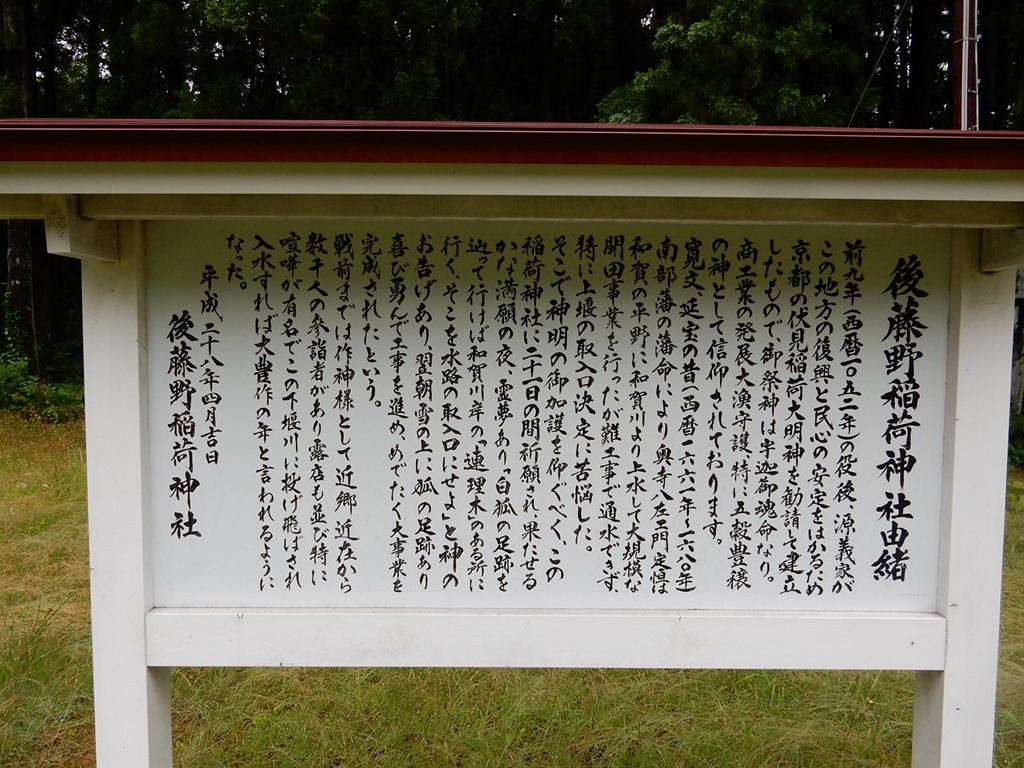 後藤野稲荷神社由緒
前九年(西暦一〇五二年)の役後、源義家が
この地方の復興と民心の安定をはかるため
京都の伏見稲荷大明神を勧請して建立
したもので、御祭神は宇迦御魂命なり。
商工業の発展、大漁守護、特に五穀豊穣
の神として信仰されております。
寛文、延宝の昔(西暦一六六一年~一六八〇年)
南部藩の藩命により奥寺八左エ門、定恒は
和賀の平野に和賀川より上水して大規模な
開田事業を行ったが難工事で通水できず、
特に上堰の取入口決定に苦悩した。
そこで神明の御加護を仰ぐべく、この
稲荷神社に二十一日の間祈願され、果たせる
かな満願の夜、霊夢あり「白狐の足跡を
辿って行けば和賀川岸の「連理木」のある所に
行く、そこを水路の取入口にせよ」と神の
お告げあり、翌朝雪の上に狐の足跡あり
喜び勇んで工事を進め、めでたく大事業を
完成されたという。
戦前までは作神様として近郷近在から
数千人の参詣者があり露店も並び特に
喧嘩が有名でこの下堰川に投げ飛ばされ
入水すれば大豊作の年と言われるように
なった。
平成二十八年四月吉日
後藤野稲荷神社